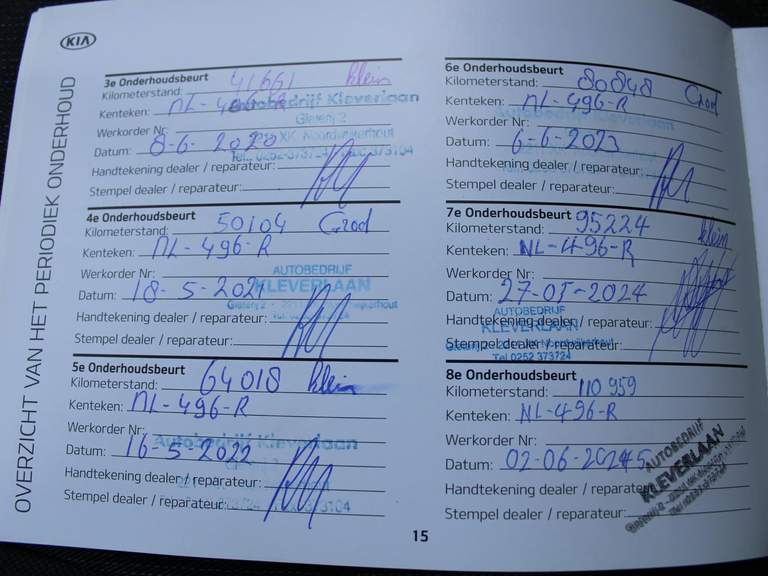 KIA
OVERZICHT VAN HET PERIODIEK ONDERHOUD
3e Onderhoudsbeurt
Kilometerstand: 41661 klein
Kenteken: NL-496-R
Autobedrijf Kleverlaan
Werkorder Nr:
Datum: 8-6-2020
Handtekening dealer / reparateur:
Stempel dealer / reparateur:
4e Onderhoudsbeurt
Kilometerstand: 50104 Groot
Kenteken: NL-496-R
Werkorder Nr:
AUTOBEDRIJF
KLEVERLAAN
Datum: 18-5-2021
Handtekening dealer / reparateur:
Stempel dealer / reparateur:
5e Onderhoudsbeurt
Kilometerstand: 64018 klein
Kenteken: NL-496-R
Werkorder Nr:
Autobedrijf Kleverlaan
Datum: 16-5-2022
Handtekening dealer / reparateur:
Stempel dealer / reparateur:
6e Onderhoudsbeurt
Kilometerstand: 80848 Groot
Kenteken: NL-496-R
Werkorder Nr:
Autobedrijf Kleverlaan
Datum: 6-6-2023
Handtekening dealer / reparateur:
Stempel dealer / reparateur:
7e Onderhoudsbeurt
Kilometerstand: 95224 klein
Kenteken: NL-496-R
Werkorder Nr:
Datum: 27-05-2024
AUTOBEDRIJF
Handtekening dealer / reparateur:
KLEVERLAAN
Stempel dealer / reparateur:
Tel 0252 373724
8e Onderhoudsbeurt
Kilometerstand: 110 959
Kenteken: NL-496-R
Werkorder Nr:
Datum: 02-06-2025
AUTOBEDRIJF
KLEVERLAAN
Handtekening dealer / reparateur:
Stempel dealer / reparateur:
15